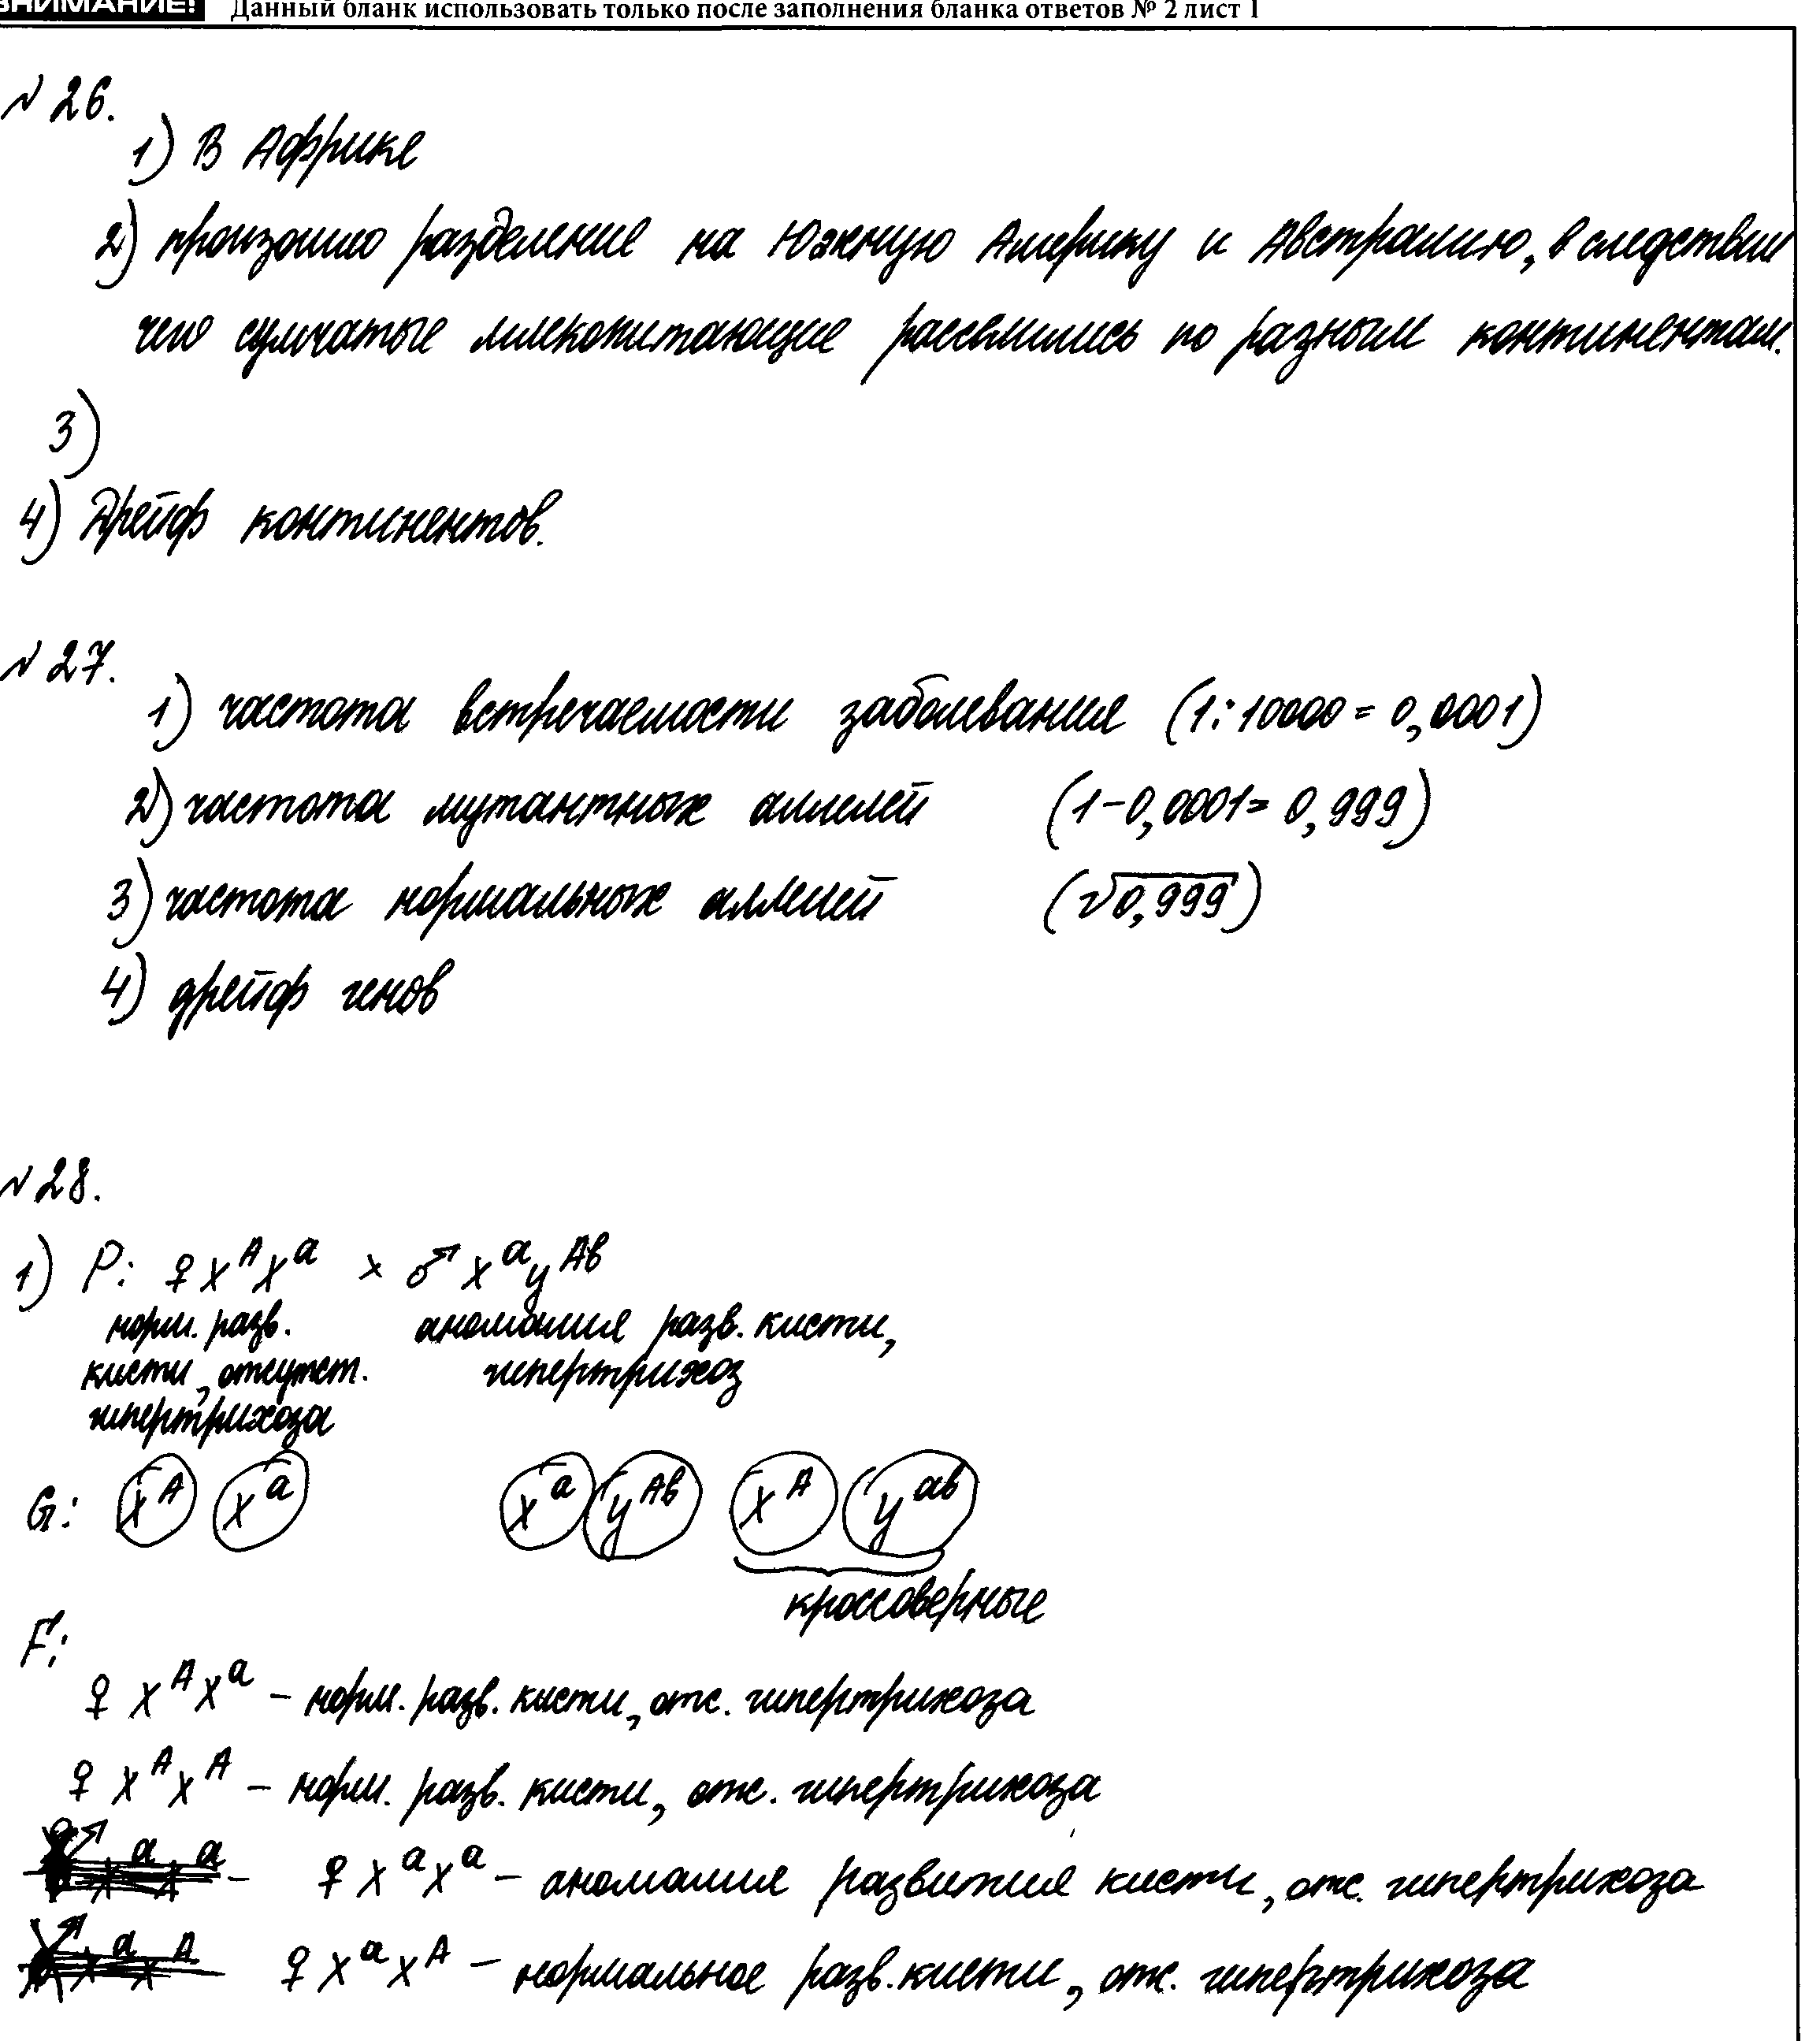 ВНИМАНИЕ! Данный бланк использовать только после заполнения бланка ответов № 2 лист 1
№ 26.
1) В Африке
2) произошло разделение на Южную Америку и Австралию, в следствии
чего сумчатые млекопитающие расселились по разным континентам.
3)
4) Дрейф континентов.
№ 27.
1) частота встречаемости заболевания (1:10000 = 0,0001)
2) частота мутантных аллелей (1-0,0001= 0,999)
3) частота нормальных аллелей (√0,999)
4) дрейф генов
№ 28.
1) P: ♀ X^A X^a × ♂ X^a y^Aв
норм. разв. аномалия разв. кисти,
кисти, отсутст. гипертрихоз
гипертрихоза
G: X^A X^a X^a y^Aв X^A y^aв
кроссоверные
F:
♀ X^A X^a – норм. разв. кисти, отс. гипертрихоза
♀ X^A X^A – норм. разв. кисти, отс. гипертрихоза
♀ X^a X^a – аномалия развития кисти, отс. гипертрихоза
♀ X^a X^A – нормальное разв. кисти, отс. гипертрихоза